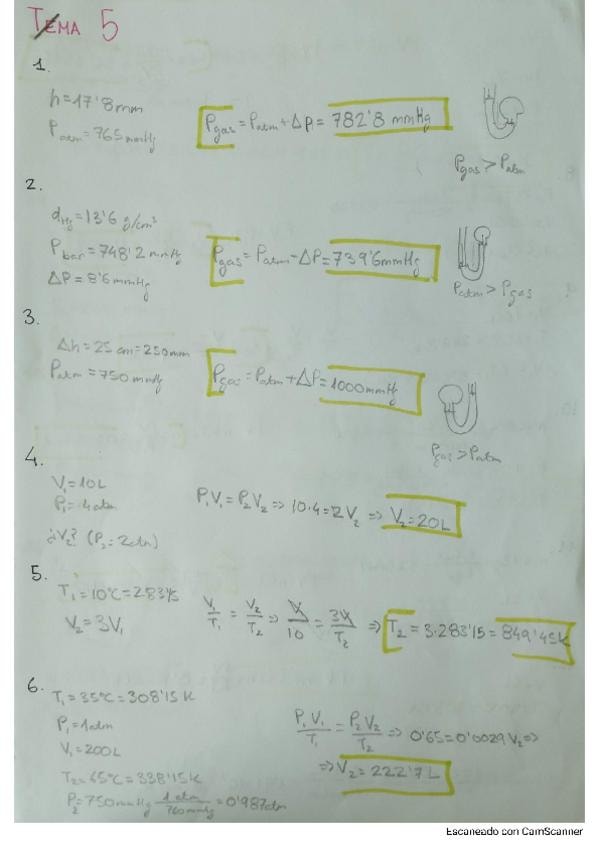 TEMA 5
1.
h=17'8mm
Patm=765mmHg
Pgas=Patm+ΔP=782'8 mmHg
Pgas>Patm
2.
dHg=13'6 g/cm³
Pbar=748'2mmHg
ΔP=8'6mmHg
Pgas=Patm-ΔP=739'6mmHg
Patm>Pgas
3.
Δh=25cm=250mm
Patm=750mmHg
Pgas=Patm+ΔP=1000mmHg
Pgas>Patm
4.
V₁=10L
P₁=4atm
¿V₂? (P₂=2atm)
P₁V₁=P₂V₂=>10·4=2V₂=>V₂=20L
5.
T₁=10ºC=283'15
V₂=3V₁
V₁/T₁=V₂/T₂=>V/10=3V/T₂=>T₂=3·283'15=849'45K
6.
T₁=35ºC=308'15K
P₁=1atm
V₁=200L
T₂=65ºC=338'15K
P₂=750mmHg 1 atm/760mmHg=0'987atm
P₁V₁/T₁=P₂V₂/T₂=>0'65=0'0029V₂=>
=>V₂=222'7L
Escaneado con CamScanner